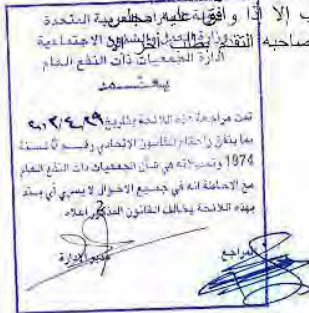 ب إلا إذا وافق عليه مجلس
صاحبه التقدم بطلب آخر إلا
العربية المتحدة
وزارة العمل والشؤون الاجتماعية
إدارة الجمعيات ذات النفع العام
يعتمد
تمت مراجعة هذه اللائحة بتاريخ
بما يتفق وأحكام القانون الاتحادي رقم ٦ لسنة
1974 وتعديلاته في شأن الجمعيات ذات النفع العام
مع الاحاطة انه في جميع الاحوال لا يسري أي بند
بهذه اللائحة يخالف القانون المذكور اعلاه
المراجع
مدير الإدارة